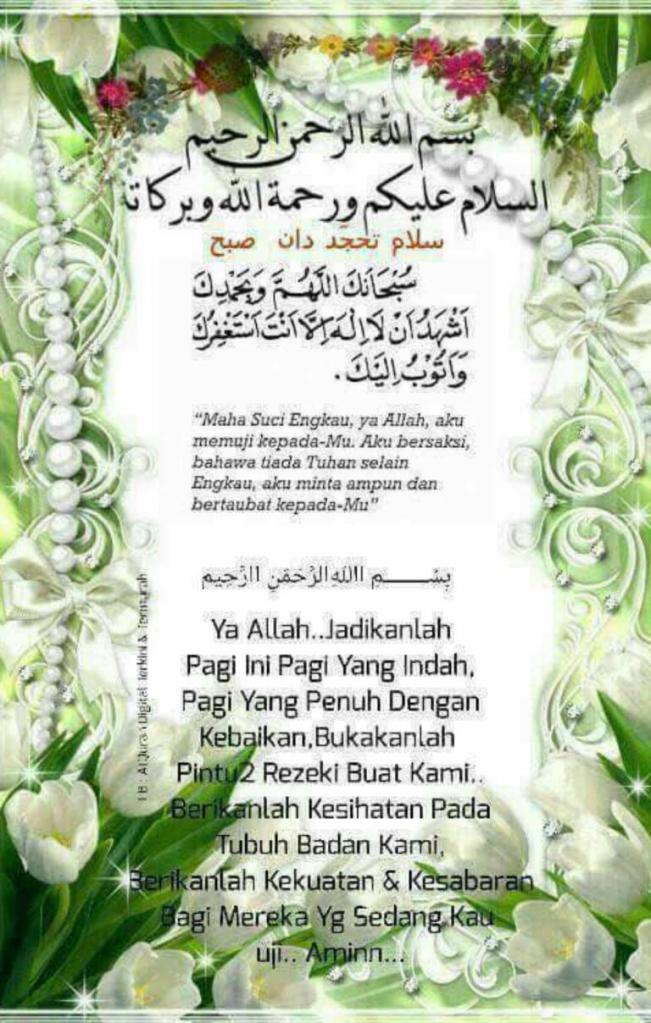 بسم الله الرحمن الرحيم
السلام عليكم ورحمة الله وبركاته
سلام تحجد دان صبح
سُبْحَانَكَ اللَّهُمَّ وَبِحَمْدِكَ
اَشْهَدُ اَنْ لَا اِلٰهَ اِلَّا اَنْتَ اَسْتَغْفِرُكَ
وَاَتُوْبُ اِلَيْكَ.
"Maha Suci Engkau, ya Allah, aku
memuji kepada-Mu. Aku bersaksi,
bahawa tiada Tuhan selain
Engkau, aku minta ampun dan
bertaubat kepada-Mu"
بِسْــــــمِ اللهِ الرَّحْمٰنِ الرَّحِيمِ
Ya Allah..Jadikanlah
Pagi Ini Pagi Yang Indah,
Pagi Yang Penuh Dengan
Kebaikan,Bukakanlah
Pintu2 Rezeki Buat Kami..
Berikanlah Kesihatan Pada
Tubuh Badan Kami,
Berikanlah Kekuatan & Kesabaran
Bagi Mereka Yg Sedang Kau
uji.. Aminn...
FB : Al Quran Digital Terkini & Termurah